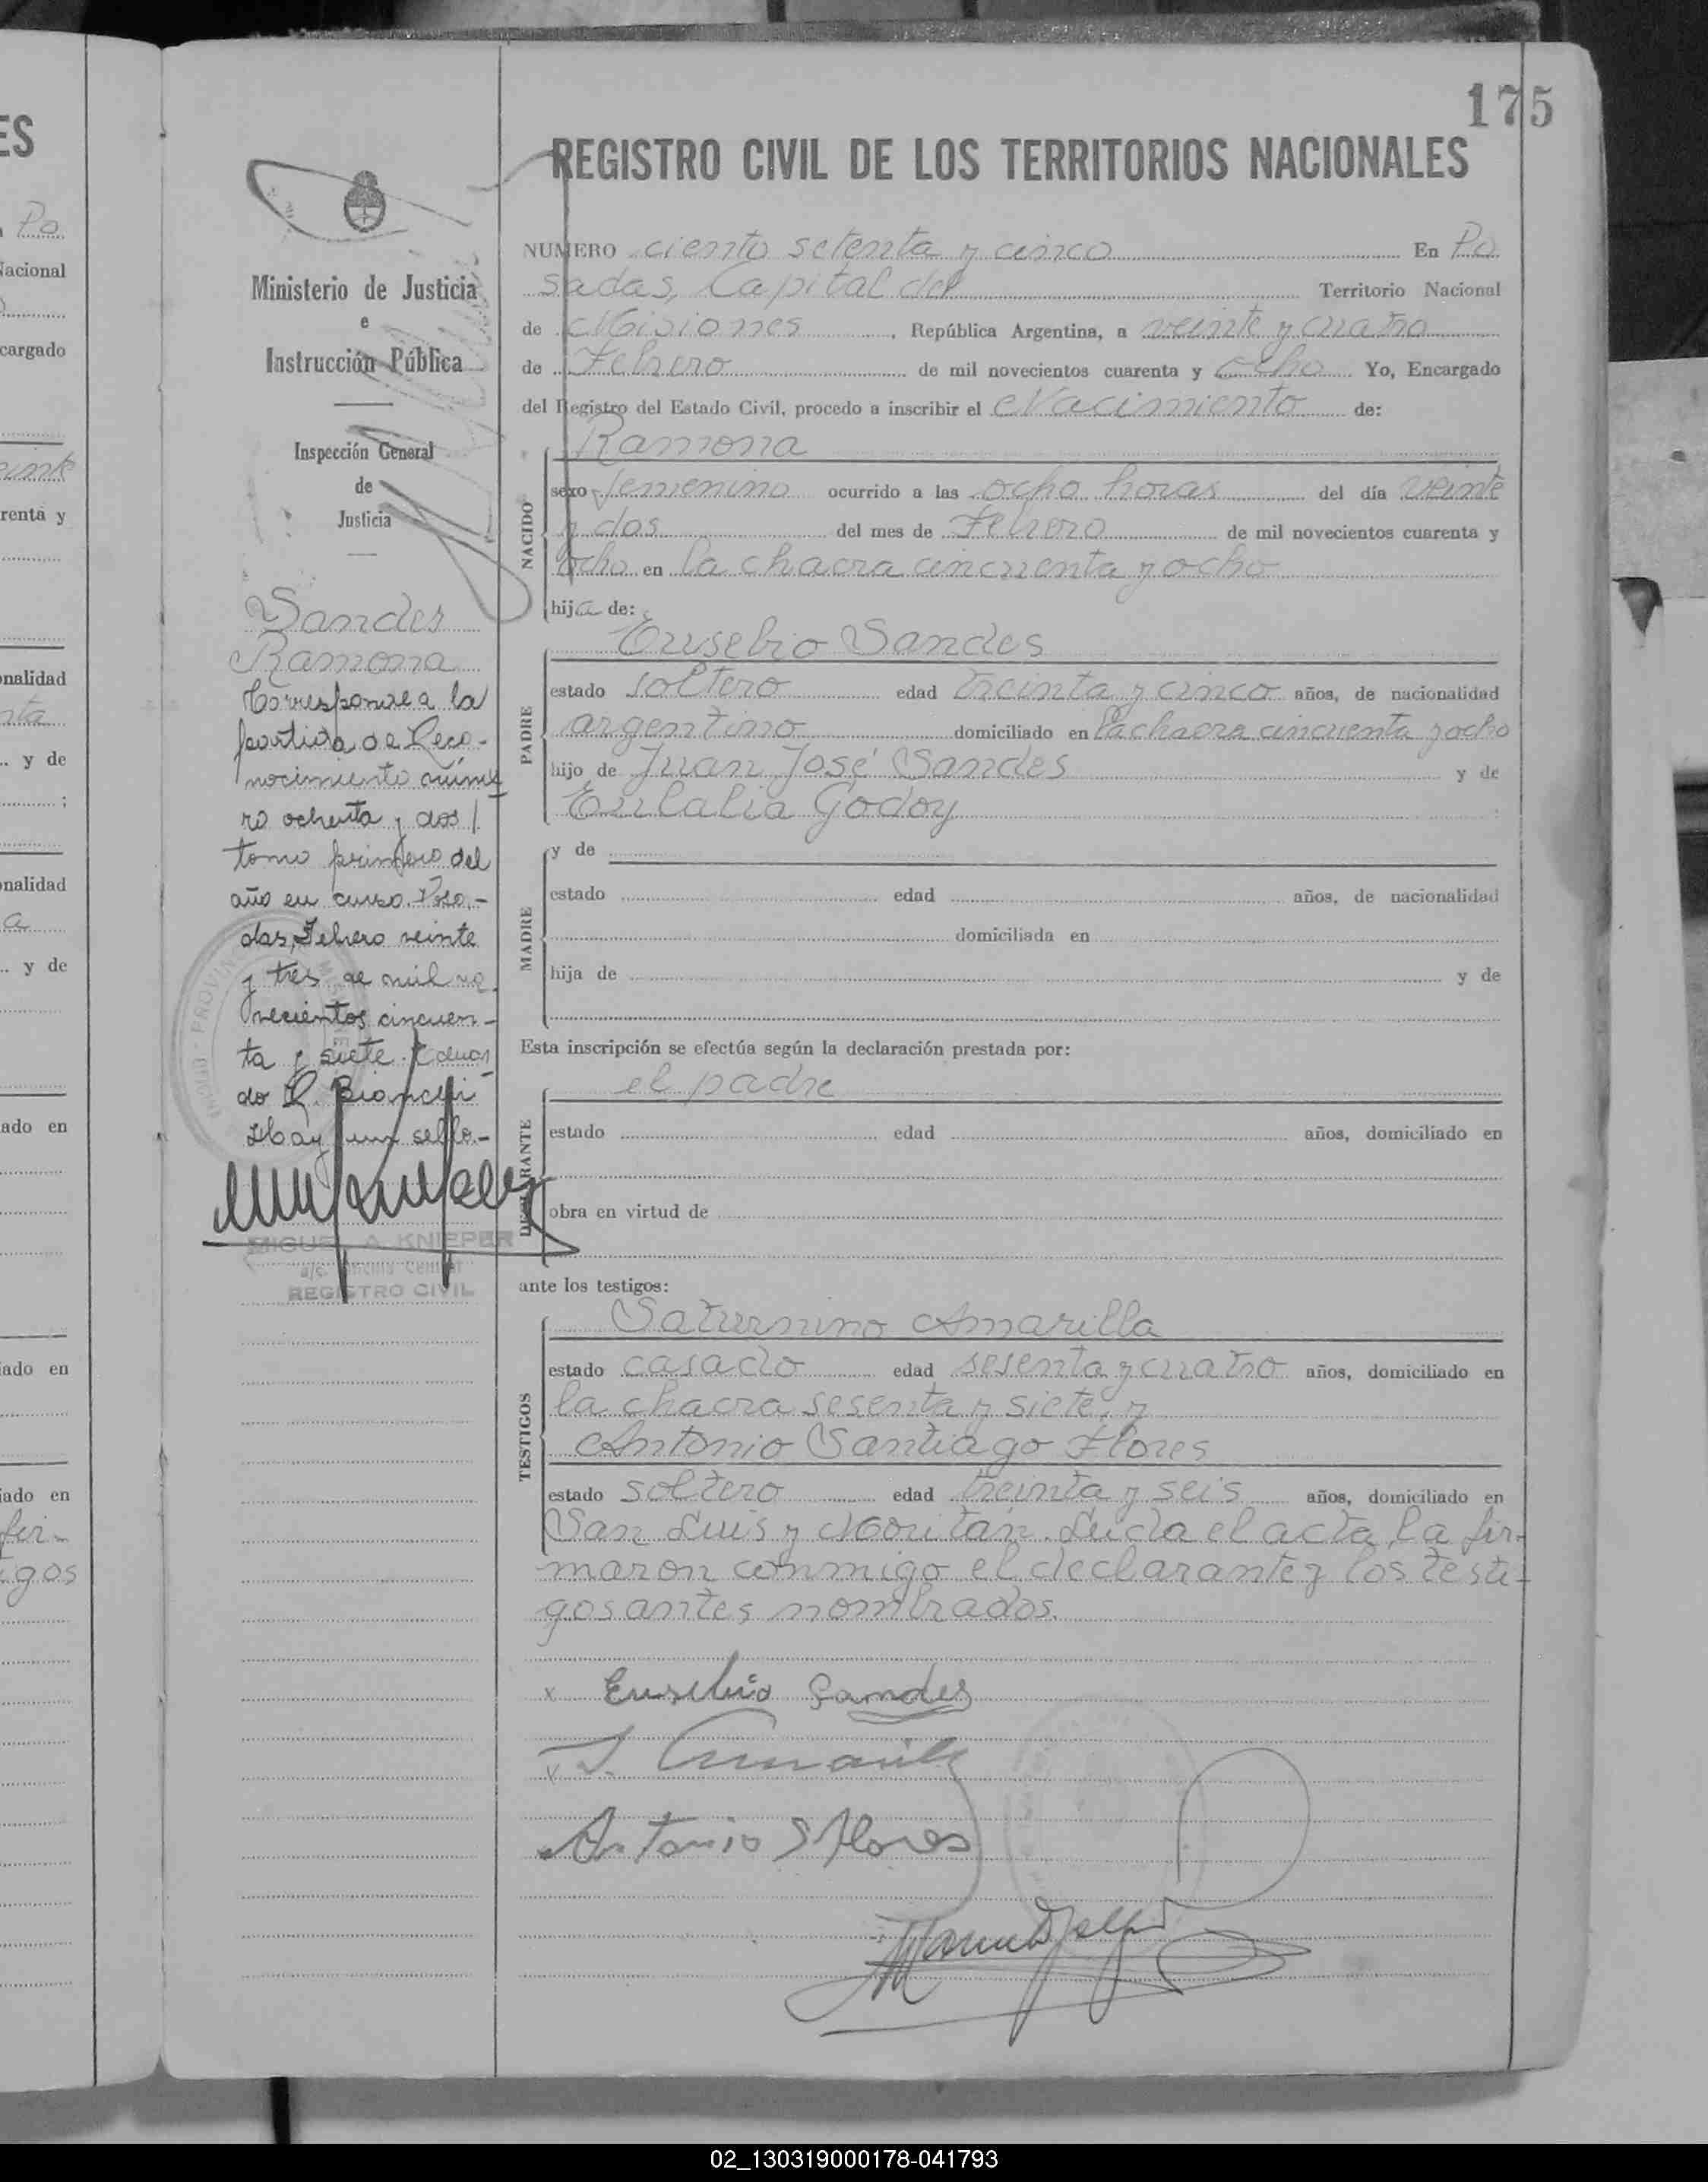 175
REGISTRO CIVIL DE LOS TERRITORIOS NACIONALES
Ministerio de Justicia
e
Instrucción Pública
Inspección General
de
Justicia
NUMERO ciento setenta y cinco En Po
sadas, Capital del Territorio Nacional
de Misiones, República Argentina, a veinte y cuatro
de Febrero de mil novecientos cuarenta y ocho Yo, Encargado
del Registro del Estado Civil, procedo a inscribir el Nacimiento de:
NACIDO
Ramona
sexo femenino ocurrido a las ocho horas del día veinte
y dos del mes de Febrero de mil novecientos cuarenta y
ocho en la chacra cincuenta y ocho
hija de:
PADRE
Eusebio Sandes
estado soltero edad treinta y cinco años, de nacionalidad
argentino domiciliado en la chacra cincuenta y ocho
hijo de Juan José Sandes y de
Eulalia Godoy
MADRE
y de
estado edad años, de nacionalidad
domiciliada en
hija de y de
Esta inscripción se efectúa según la declaración prestada por:
DECLARANTE
el padre
estado edad años, domiciliado en
obra en virtud de
ante los testigos:
TESTIGOS
Saturnino Amarilla
estado casado edad sesenta y cuatro años, domiciliado en
la chacra sesenta y siete, y
Antonio Santiago Flores
estado soltero edad treinta y seis años, domiciliado en
San Luis y Leida el acta, la fir-
maron conmigo el declarante y los testi-
gos antes nombrados.
x Eusebio Sandes
Antonio S Flores
Sandes
Ramona
Corresponde a la
partida de Reco-
nocimiento núme
ro ochenta y dos
tomo primero del
año en curso. Posa-
das, Febrero veinte
y tres de mil no
vecientos cincuen-
ta y siete. Eduar
do L. Bianchi
Hay un sello.-
MIGUEL A. KNIEPER
REGISTRO CIVIL
ES
Po
Nacional
cargado
einte
renta y
onalidad
nta
y de
onalidad
a
y de
ado en
iado en
iado en
fir-
igos
02_130319000178-041793